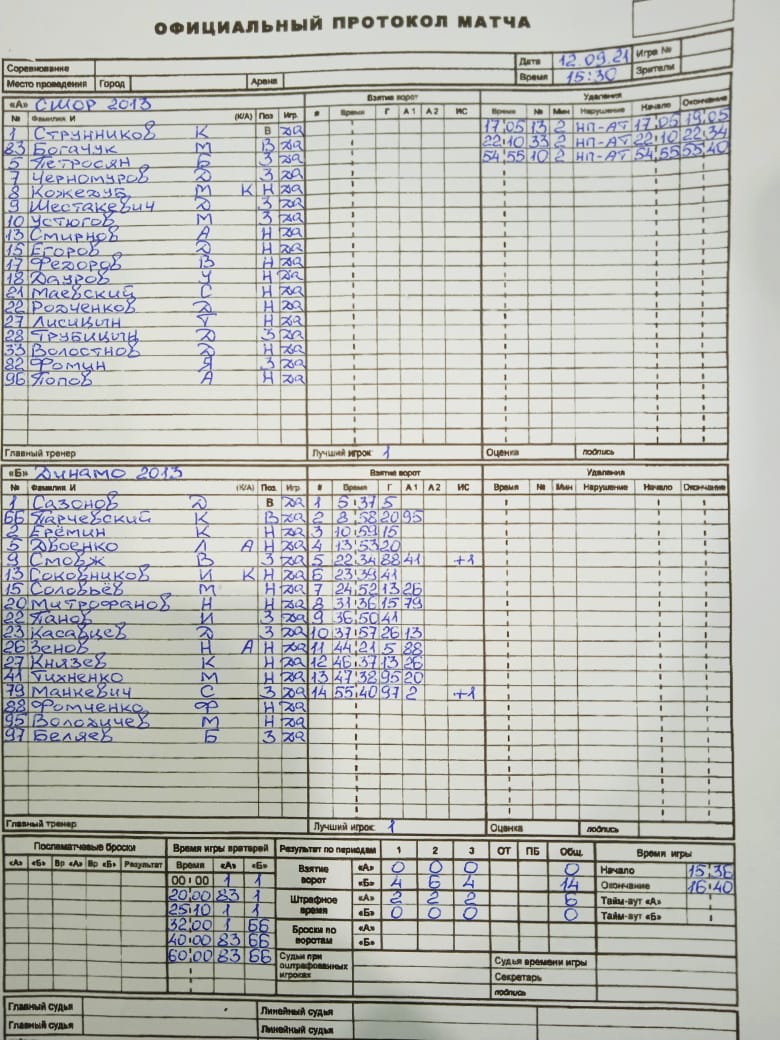 ОФИЦИАЛЬНЫЙ ПРОТОКОЛ МАТЧА
Соревнование Дата 12.09.21 Игра №
Место проведения Город Арена Время 15:30 Зрители
«А» СШОР 2013 Взятие ворот Удаления
№ Фамилия И (К/А) Поз Игр. # Время Г А1 А2 ИС Время № Мин Нарушение Начало Окончание
1 Струнников К В да 17:05 13 2 НП-АТ 17:05 19:05
83 Богачук М В да 22:10 33 2 НП-АТ 22:10 22:34
5 Петросян Б З да 54:55 10 2 НП-АТ 54:55 55:40
7 Черномуров Д З да
8 Кожедуб М К Н да
9 Шестакевич Д З да
10 Устюгов М З да
13 Смирнов А Н да
15 Егоров Д Н да
17 Федоров В Н да
18 Дауров У Н да
21 Маевский С Н да
22 Родченков Д Н да
27 Лисицын Т Н да
28 Трубицын Д З да
33 Волостнов Д Н да
82 Фомин Я З да
96 Попов А Н да
Главный тренер Лучший игрок: 1 Оценка подпись
«Б» Динамо 2013 Взятие ворот Удаления
№ Фамилия И (К/А) Поз. Игр. # Время Г А1 А2 ИС Время № Мин Нарушение Начало Окончание
1 Сазонов Д В да 1 5:37 5
66 Парчевский К В да 2 8:58 20 95
2 Ерёмин К Н да 3 10:59 15
5 Двоенко Л А Н да 4 13:53 20
9 Смовж В З да 5 22:34 88 41 +1
13 Соковников И К Н да 6 23:39 41
15 Соловьёв М Н да 7 24:52 13 26
20 Митрофанов Н Н да 8 31:36 15 79
22 Панов И З да 9 36:50 41
23 Касавцев Д З да 10 37:57 26 13
26 Зенов Н А Н да 11 44:21 5 88
27 Князев К Н да 12 46:37 13 26
41 Тихненко М Н да 13 47:38 95 20
79 Манкевич С З да 14 55:40 97 2 +1
88 Фомченко Ф Н да
95 Володичев М Н да
97 Беляев Б З да
Главный тренер Лучший игрок: 1 Оценка подпись
Послематчевые броски Время игры вратарей Результат по периодам 1 2 3 ОТ ПБ Общ. Время игры
«А» «Б» Вр «А» Вр «Б» Результат Время «А» «Б» Взятие ворот «А» 0 0 0 0 Начало 15:36
00:00 1 1 «Б» 4 6 4 14 Окончание 16:40
20:00 83 1 Штрафное время «А» 2 2 2 6 Тайм-аут «А»
25:10 1 1 «Б» 0 0 0 0 Тайм-аут «Б»
32:00 1 66 Броски по воротам «А»
40:00 83 66 «Б»
60:00 83 66 Судьи при оштрафованных игроках Судья времени игры
Секретарь
подпись
Главный судья Линейный судья
Главный судья Линейный судья